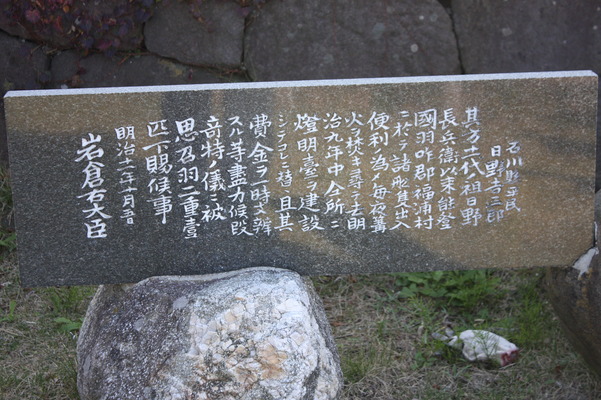 石川縣平民
日野吉三郎
其方十一代祖日野
長兵衛以来能登
國羽咋郡福浦村
ニ於テ諸船出入
便利ノ為メ毎夜篝
火ヲ焚キ尋テ去明
治九年中仝所ニ
燈明臺ヲ建設
シテコレニ替且其
費金ヲ時々辨
スル等盡力候段
奇特ノ儀ニ被
思召羽二重壹
匹下賜候事
明治十一年十月
岩倉右大臣